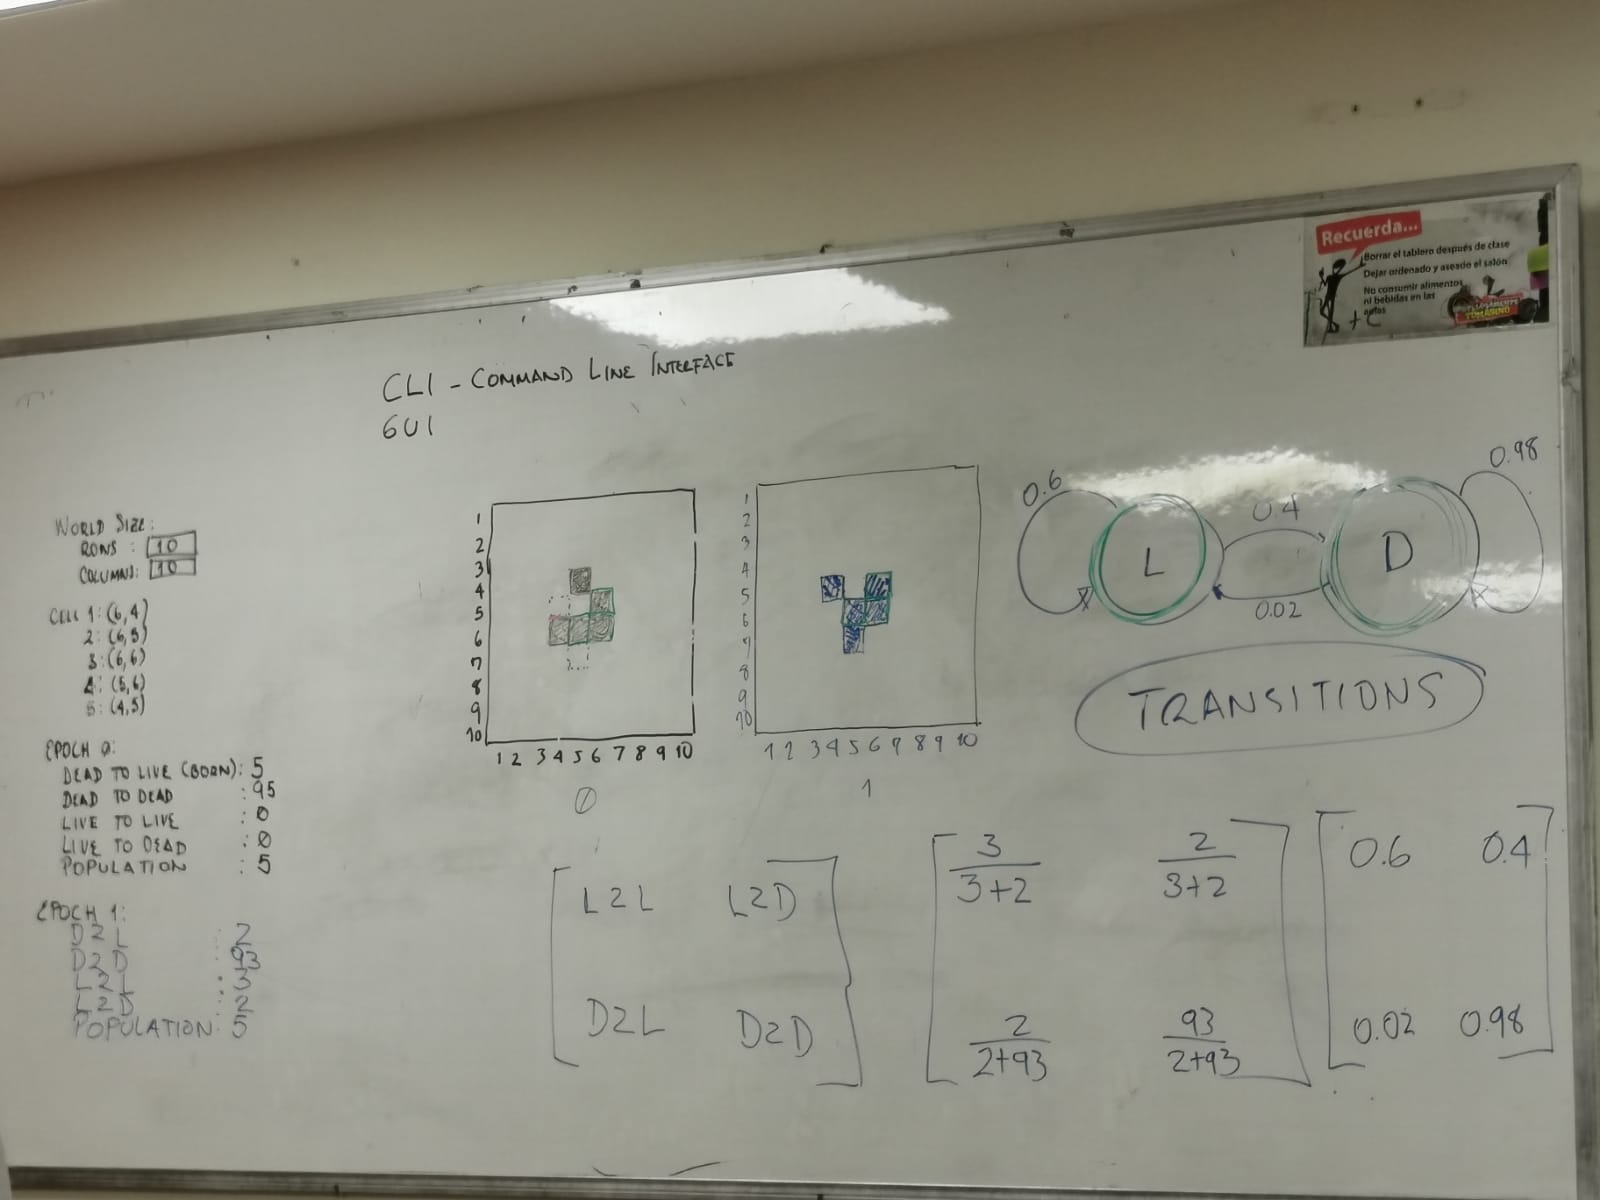 Recuerda...
Borrar el tablero después de clase
Dejar ordenado y aseado el salón
No consumir alimentos
ni bebidas en las
aulas
TOMASINO
+C
CLI - COMMAND LINE INTERFACE
GUI
WORLD SIZE:
ROWS : 10
COLUMNS: 10
CELL 1: (6,4)
2: (6,5)
3: (6,6)
4: (5,6)
5: (4,5)
EPOCH 0:
DEAD TO LIVE (BORN): 5
DEAD TO DEAD : 95
LIVE TO LIVE : 0
LIVE TO DEAD : 0
POPULATION : 5
EPOCH 1:
D2L : 2
D2D : 93
L2L : 3
L2D : 2
POPULATION: 5
1
2
3
4
5
6
7
8
9
10
1 2 3 4 5 6 7 8 9 10
0
1
2
3
4
5
6
7
8
9
10
1 2 3 4 5 6 7 8 9 10
1
0.6
L
0.4
0.02
D
0.98
TRANSITIONS
L2L L2D
D2L D2D
3 2
3+2 3+2
2 93
2+93 2+93
0.6 0.4
0.02 0.98